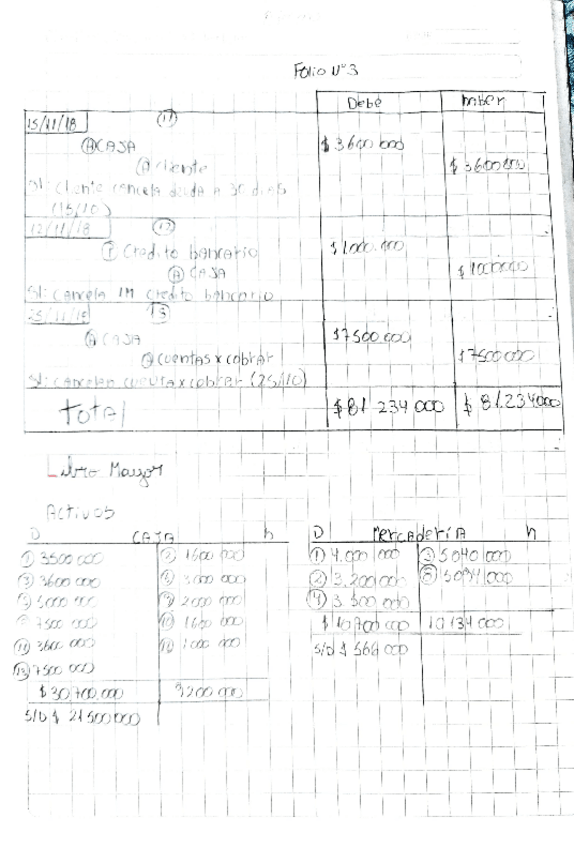 Folio N°3
Debe haber
15/11/18 (11)
(A) CAJA $3600 000
(A) cliente $3600000
SI: Cliente cancela deuda a 30 dias
(15/10)
(12)
(P) Credito bancario $1000.000
(A) CAJA $1000000
SI: cancela 1M credito bancario
25/11/18 13
(A) CAJA $7500.000
(A) cuentas x cobrar $7500000
SI: cancelan cuenta x cobrar (25/10)
Total $81 234 000 $81.234000
Libro Mayor
Activos
D CAJA h
(1) 3500 000 1600 000
(3) 3600 000 3000 000
5000 000 2000 000
7500 000 (10) 1600 000
(11) 3600 000 (12) 1000 000
(13) 7500 000
$30,700.000 9200 000
S/D $ 21500000
D Mercaderia h
(1) 4.000 000 (3) 5040 000
(2) 3.200 000 5094 000
(4) 3.500 000
$10700 000 10134 000
S/D $ 566 000